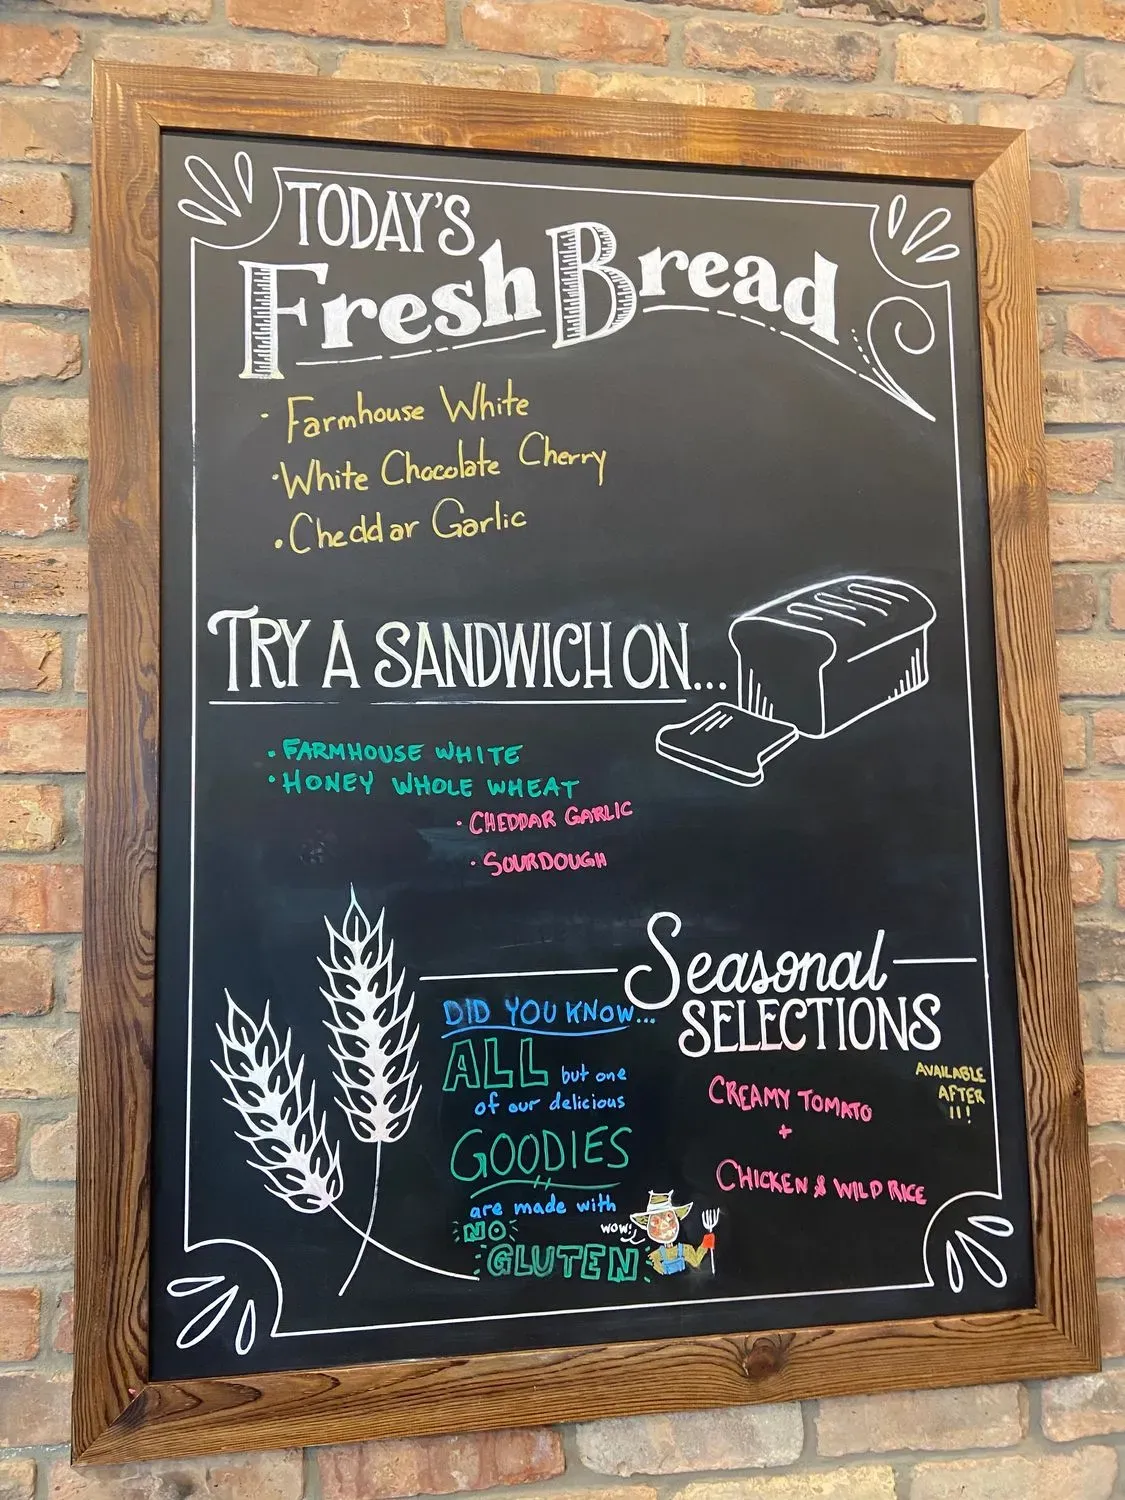 TODAY'S
Fresh Bread
· Farmhouse White
· White Chocolate Cherry
· Cheddar Garlic
TRY A SANDWICH ON...
· FARMHOUSE WHITE
· HONEY WHOLE WHEAT
· CHEDDAR GARLIC
· SOURDOUGH
Seasonal
SELECTIONS
AVAILABLE
AFTER
11!
CREAMY TOMATO
+
CHICKEN & WILD RICE
DID YOU KNOW...
ALL but one
of our delicious
GOODIES
are made with
NO
GLUTEN
WOW!